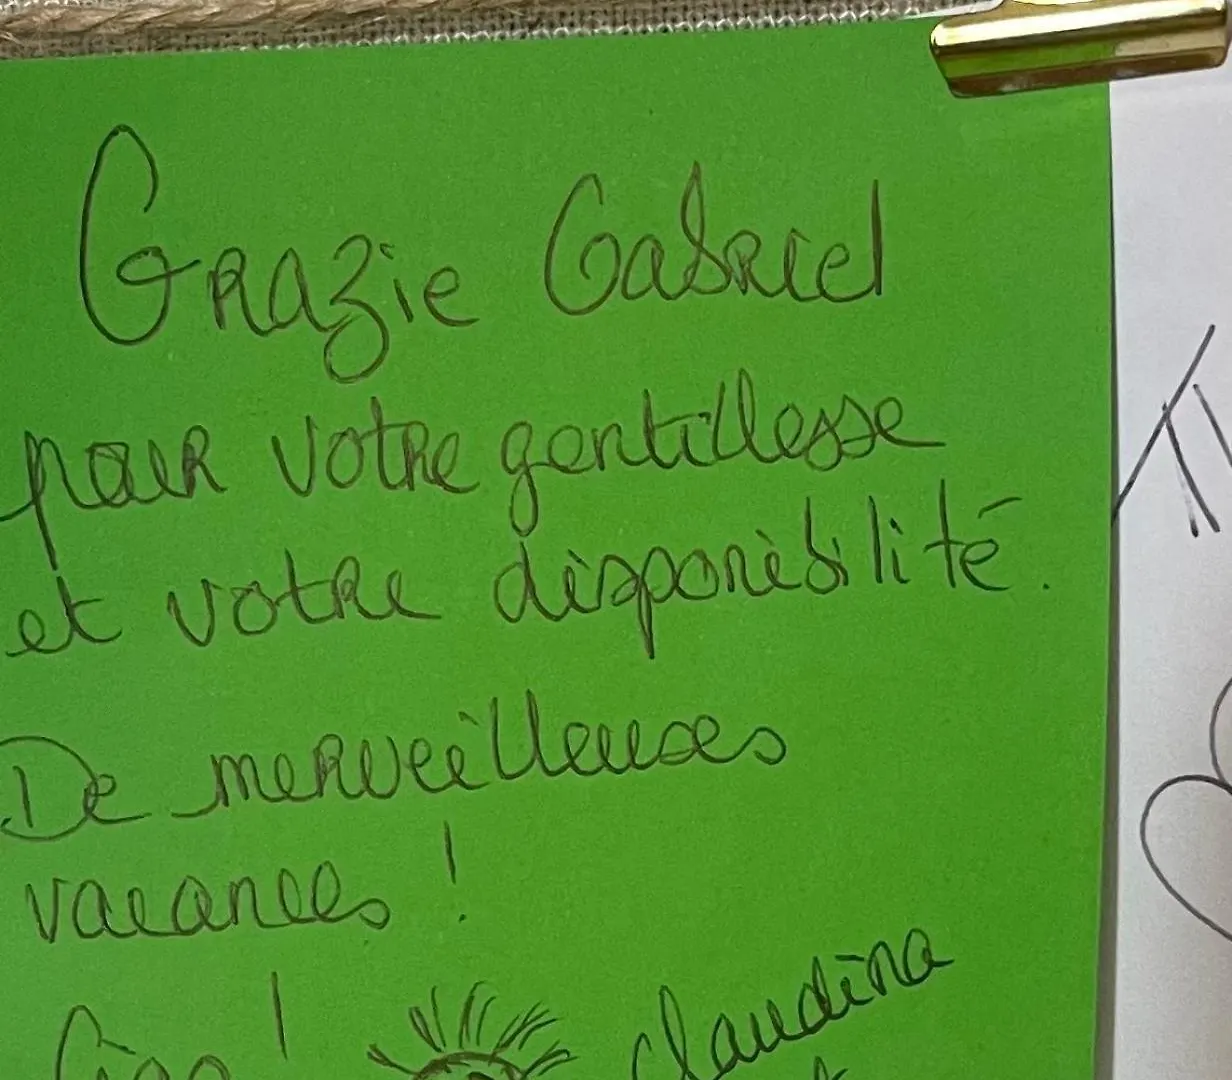 Grazie Gabriel
pour votre gentillesse
et votre disponibilité.
De merveilleuses
vacances !
Ciao !
Claudina